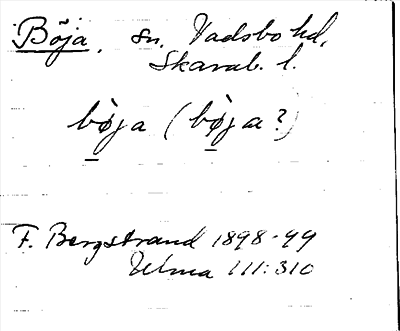 Böja, sn. Vadsbo hd,
Skarab. l.
bø̀ja (bø̀jaa?)
F. Bergstrand 1898-99
Ulma 111:310